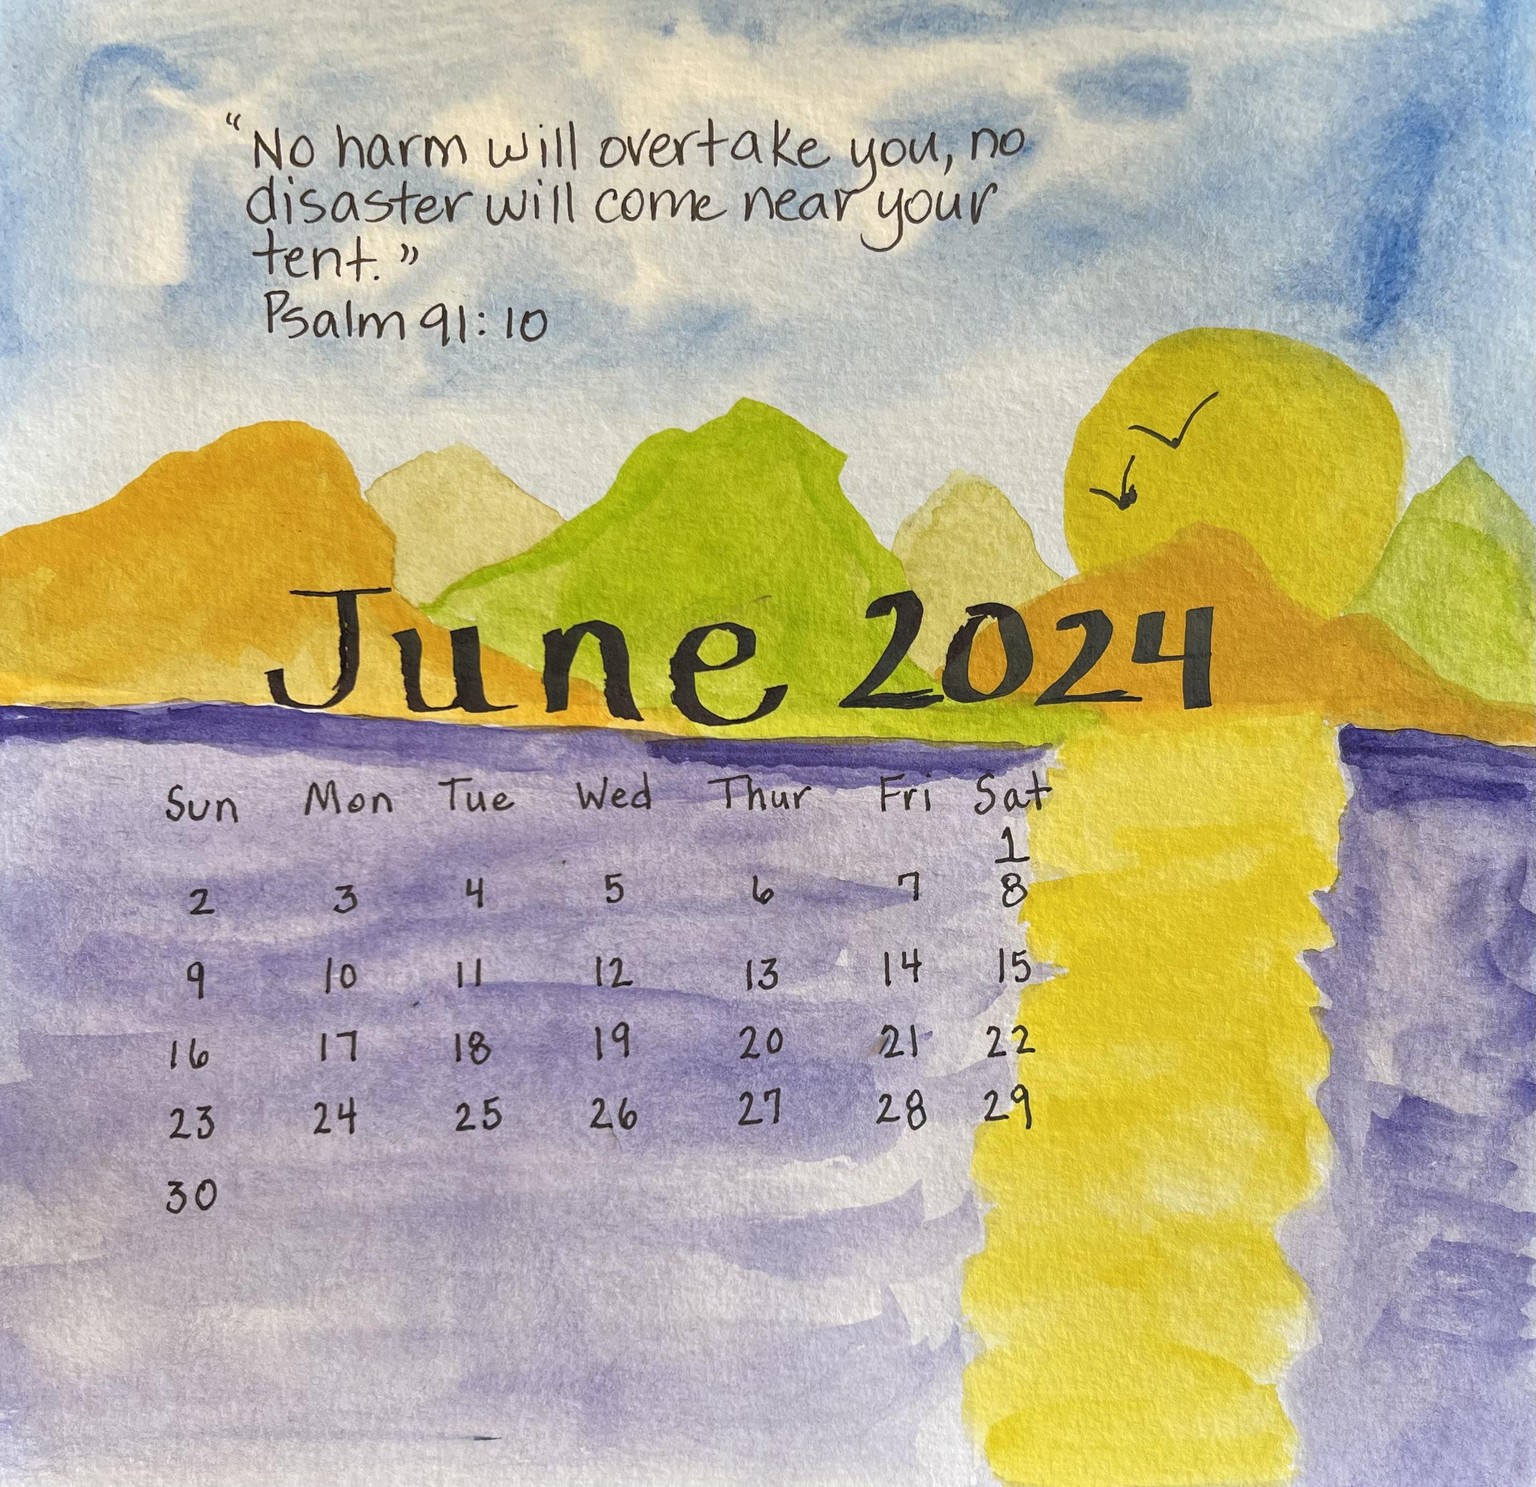 “No harm will overtake you, no
disaster will come near your
tent.”
Psalm 91:10
June 2024
Sun Mon Tue Wed Thur Fri Sat
1
2 3 4 5 6 7 8
9 10 11 12 13 14 15
16 17 18 19 20 21 22
23 24 25 26 27 28 29
30